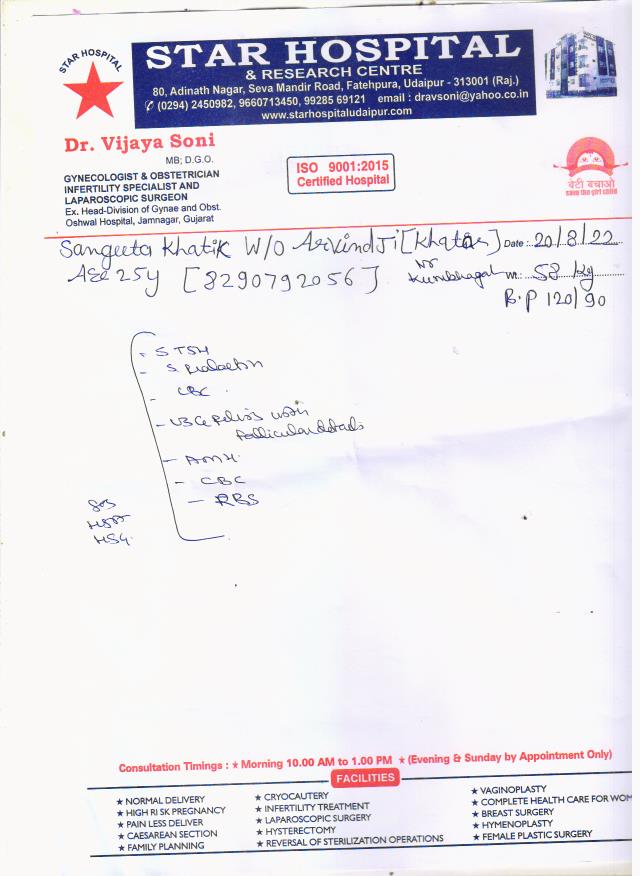 STAR HOSPITAL
STAR HOSPITAL
& RESEARCH CENTRE
80, Adinath Nagar, Seva Mandir Road, Fatehpura, Udaipur - 313001 (Raj.)
(0294) 2450982, 9660713450, 99285 69121 email : dravsoni@yahoo.co.in
www.starhospitaludaipur.com
Dr. Vijaya Soni
MB; D.G.O.
GYNECOLOGIST & OBSTETRICIAN
INFERTILITY SPECIALIST AND
LAPAROSCOPIC SURGEON
Ex. Head-Division of Gynae and Obst.
Oshwal Hospital, Jamnagar, Gujarat
ISO 9001:2015
Certified Hospital
बेटी बचाओ
save the girl child
Sangeeta Khatik W/O Arvind Ji Date : 20/8/22
Age 25y [8290792056] 58 kg
B.P 120/90
- S TSH
- S. Prolactin
- CBC
- follicular details
- AMH
- CBC
- RBS
HSG
Consultation Timings : ★ Morning 10.00 AM to 1.00 PM ★ (Evening & Sunday by Appointment Only)
FACILITIES
★ NORMAL DELIVERY
★ HIGH RI SK PREGNANCY
★ PAIN LESS DELIVER
★ CAESAREAN SECTION
★ FAMILY PLANNING
★ CRYOCAUTERY
★ INFERTILITY TREATMENT
★ LAPAROSCOPIC SURGERY
★ HYSTERECTOMY
★ REVERSAL OF STERILIZATION OPERATIONS
★ VAGINOPLASTY
★ COMPLETE HEALTH CARE FOR WOM
★ BREAST SURGERY
★ HYMENOPLASTY
★ FEMALE PLASTIC SURGERY